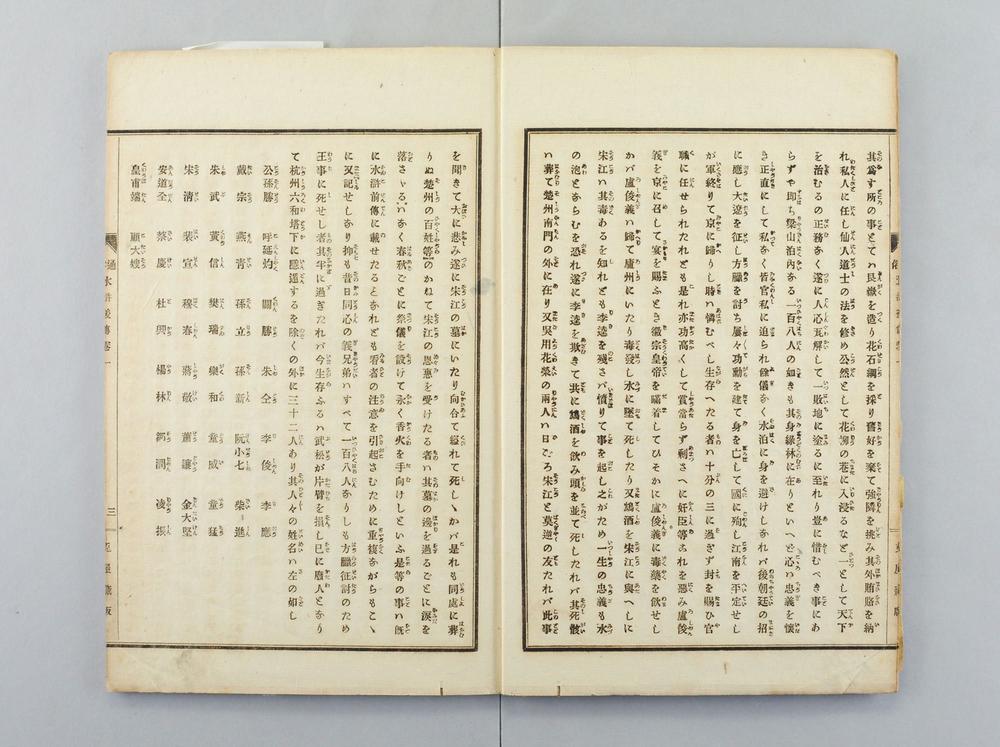 其爲す所の事とてハ艮嶽を造り花石綱を採り舊好を棄て強隣を挑み其外賄賂を納
れ私人に任し仙人道士の法を修め公然として花柳の巷に入浸るなど一として天下
を治むるの正務なく遂に人心瓦解して一敗地に塗るに至れり豈に惜むべき事にあ
らずや卽ち梁山泊內なる一百八人の如きも其身綠林に在りといへど心ハ忠義を懷
き正直にして私なく皆官私に迫られ餘儀なく水泊に身を避けしなれバ後朝廷の招
に應し大遼を征し方臘を討ち屢々功勳を建て身を亡して國に殉し江南を平定せし
が軍終りて京に歸りし時ハ憐むべし生存へたる者ハ十分の三に過ぎず封を賜ひ官
職に任せられたれども是れ亦功高くして賞當らず剩さへに奸臣等これを惡み盧俊
義を京に召して宴を賜ふとき徽宗皇帝を瞞着してひそかに盧俊義に毒藥を飮せし
かバ盧俊義ハ歸りて廬州にいたり毒發し水に墜て死したり又鴆酒を宋江に與へしに
宋江ハ其毒あるを知れども李逵を殘さバ憤りて事を起し之がため一生の忠義も水
の泡とならむを恐れ遂に李逵を欺きて共に鴆酒を飮み頭を並て死したれバ其死骸
ハ葬て楚州南門の外に在り又吳用花榮の兩人ハ日ごろ宋江と莫逆の友なれバ此事
を聞きて大に悲み遂に宋江の墓にいたり向合て縊れて死しゝかバ是れも同處に葬
りぬ楚州の百姓等ハかねて宋江の恩惠を受けたる者ハ其墓の邊を過るごとに淚を
落さゞるハなく春秋ごとに祭儀を設けて永く香火を手向けしといふ是等の事ハ旣
に水滸前傳に載せたるとなれども看者の注意を引起さむために重複ながらもこゝ
に又記せしなり抑も昔日同心の義兄弟ハすべて一百八人なりしも方臘征討のため
王事に死せし者其半に過ぎたれバ今生存ふるハ武松が片臂を損し已に廢人となり
て杭州六和塔下に隱遁するを除くの外に三十二人あり其人々の姓名ハ左の如し
公孫勝 呼延灼 關勝 朱仝 李俊 李應
戴宗 燕靑 孫立 孫新 阮小七 柴進
朱武 黃信 樊瑞 樂和 童威 童猛
宋淸 裴宣 穆春 蔣敬 董讓 金大堅
安道全 蔡慶 杜興 楊林 鄒潤 凌振
皇甫端 顧大嫂
通俗水滸後傳卷一 三